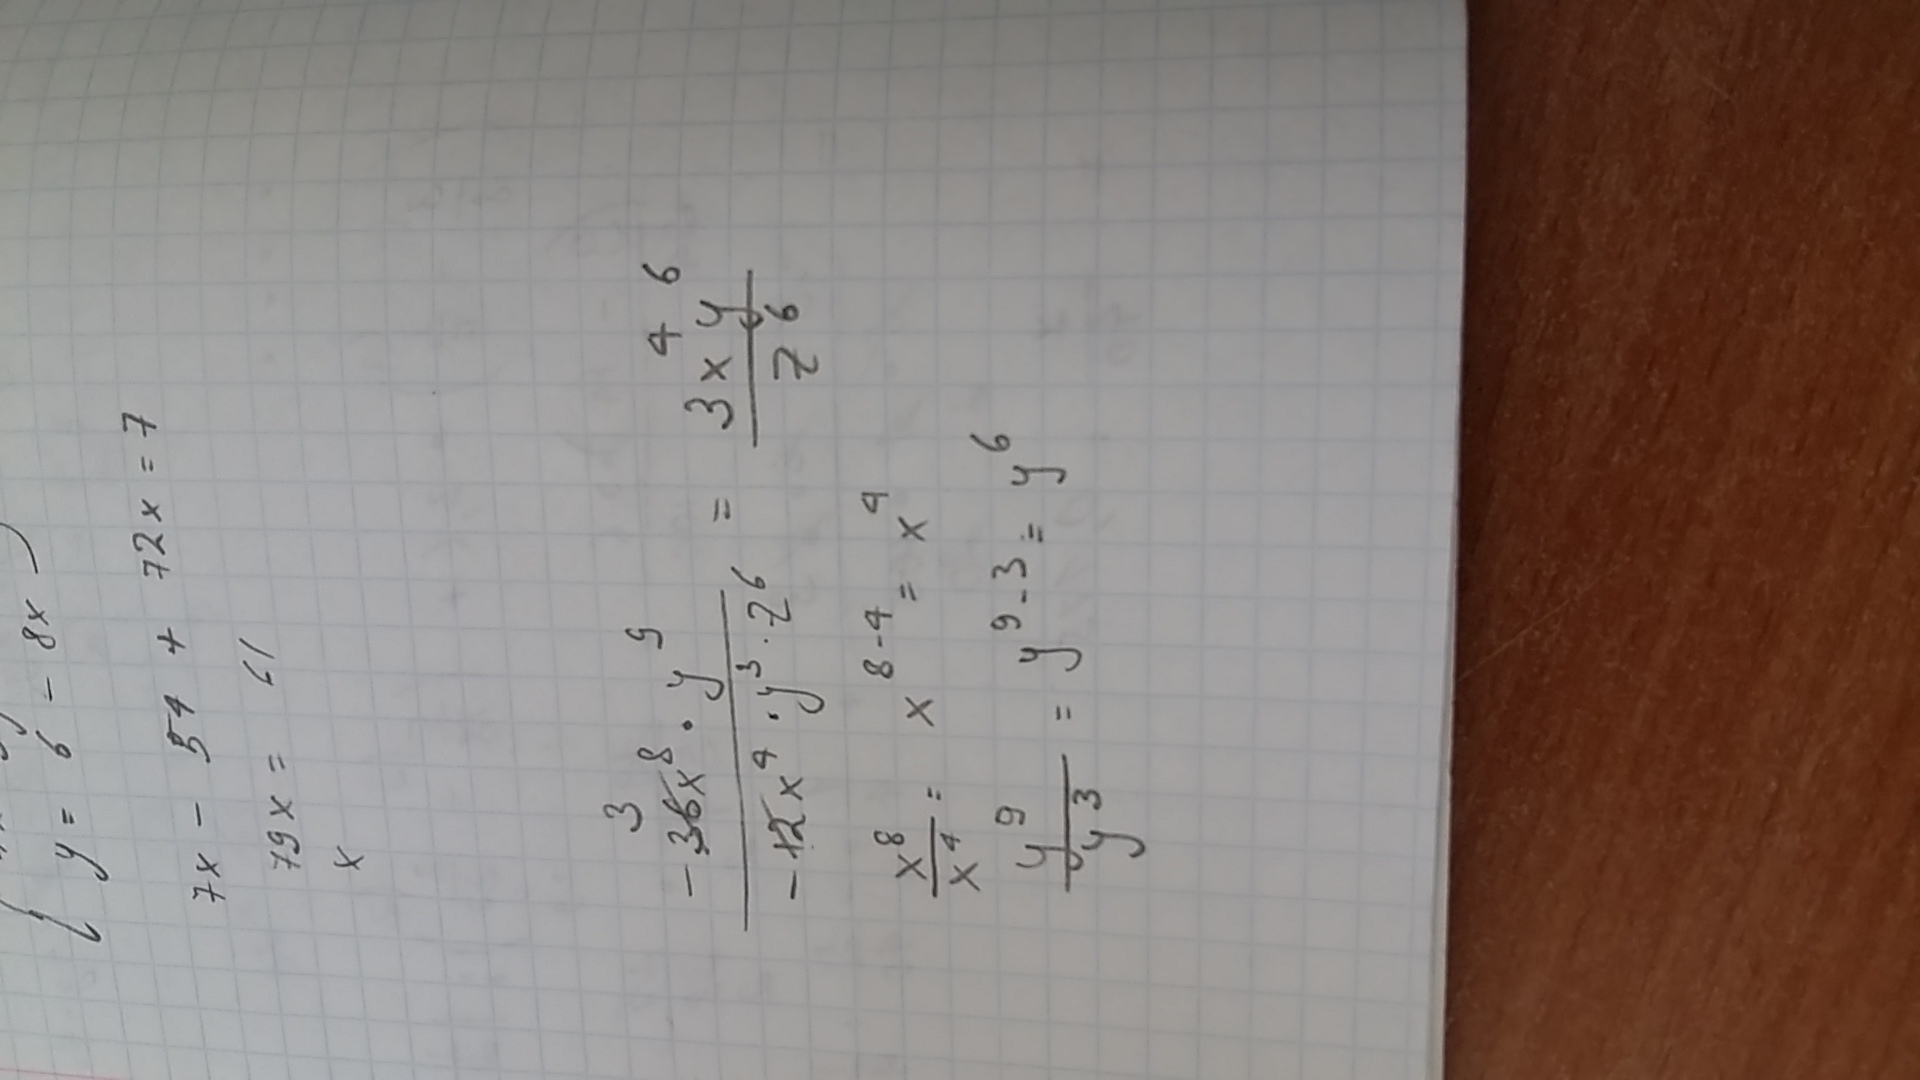 y = 6 - 8x
7x - 54 + 72x = 7
79x = 61
x
3
-36x⁸ · y⁹ / -12x⁴ · y³ · z⁶ = 3x⁴y⁶ / z⁶
x⁸ / x⁴ = x⁸⁻⁴ = x⁴
y⁹ / y³ = y⁹⁻³ = y⁶